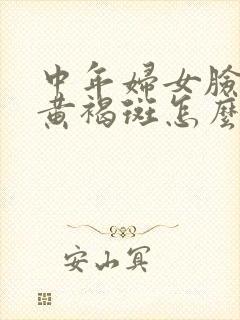 中年婦女臉
黃褐斑怎麼
安山冥